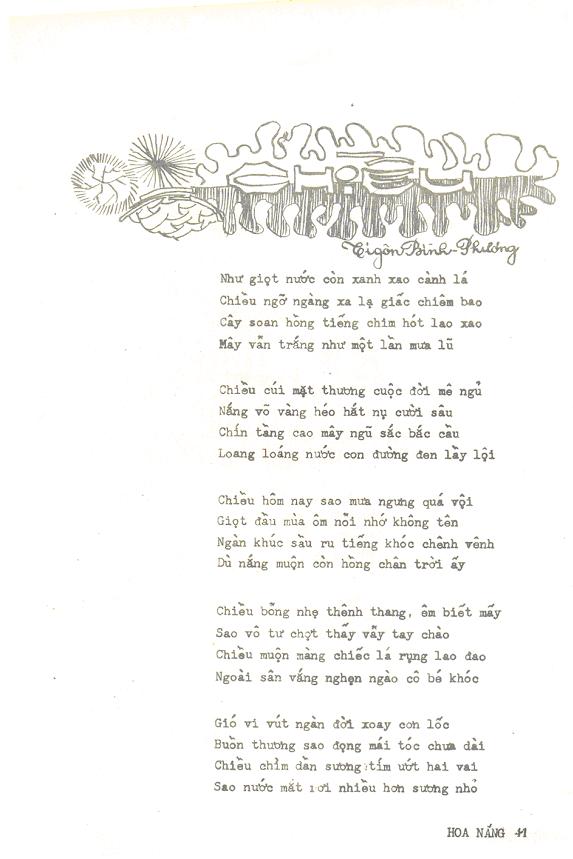 CHIỀU
Tigôn Bình-Phương
Như giọt nước còn xanh xao cành lá
Chiều ngỡ ngàng xa lạ giấc chiêm bao
Cây soan hồng tiếng chim hót lao xao
Mây vẫn trắng như một lần mưa lũ
Chiều cúi mặt thương cuộc đời mê ngủ
Nắng võ vàng héo hắt nụ cười sầu
Chín tầng cao mây ngũ sắc bắc cầu
Loang loáng nước con đường đen lầy lội
Chiều hôm nay sao mưa ngưng quá vội
Giọt đầu mùa ôm nỗi nhớ không tên
Ngàn khúc sầu ru tiếng khóc chênh vênh
Dù nắng muộn còn hồng chân trời ấy
Chiều bỗng nhẹ thênh thang, êm biết mấy
Sao vô tư chợt thấy vẫy tay chào
Chiều muộn màng chiếc lá rụng lao đao
Ngoài sân vắng nghẹn ngào cô bé khóc
Gió vi vút ngàn đời xoay cơn lốc
Buồn thương sao đọng mái tóc chưa dài
Chiều chìm dần sương tím ướt hai vai
Sao nước mắt rơi nhiều hơn sương nhỏ
HOA NẮNG 41